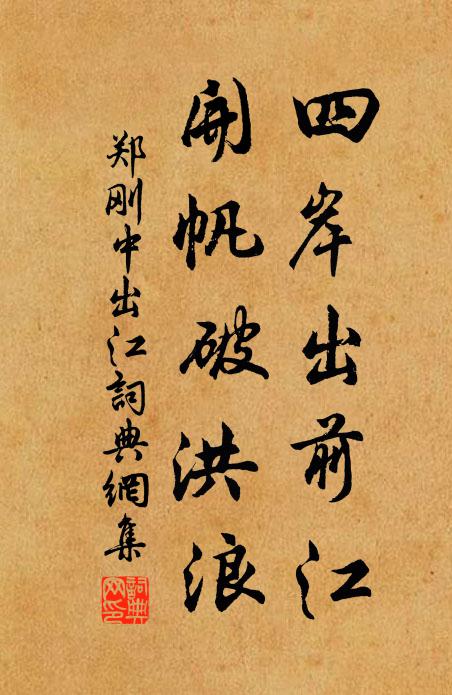 四岸出前江
開帆破洪浪
郑刚中出江詞典網集
詞典
网印